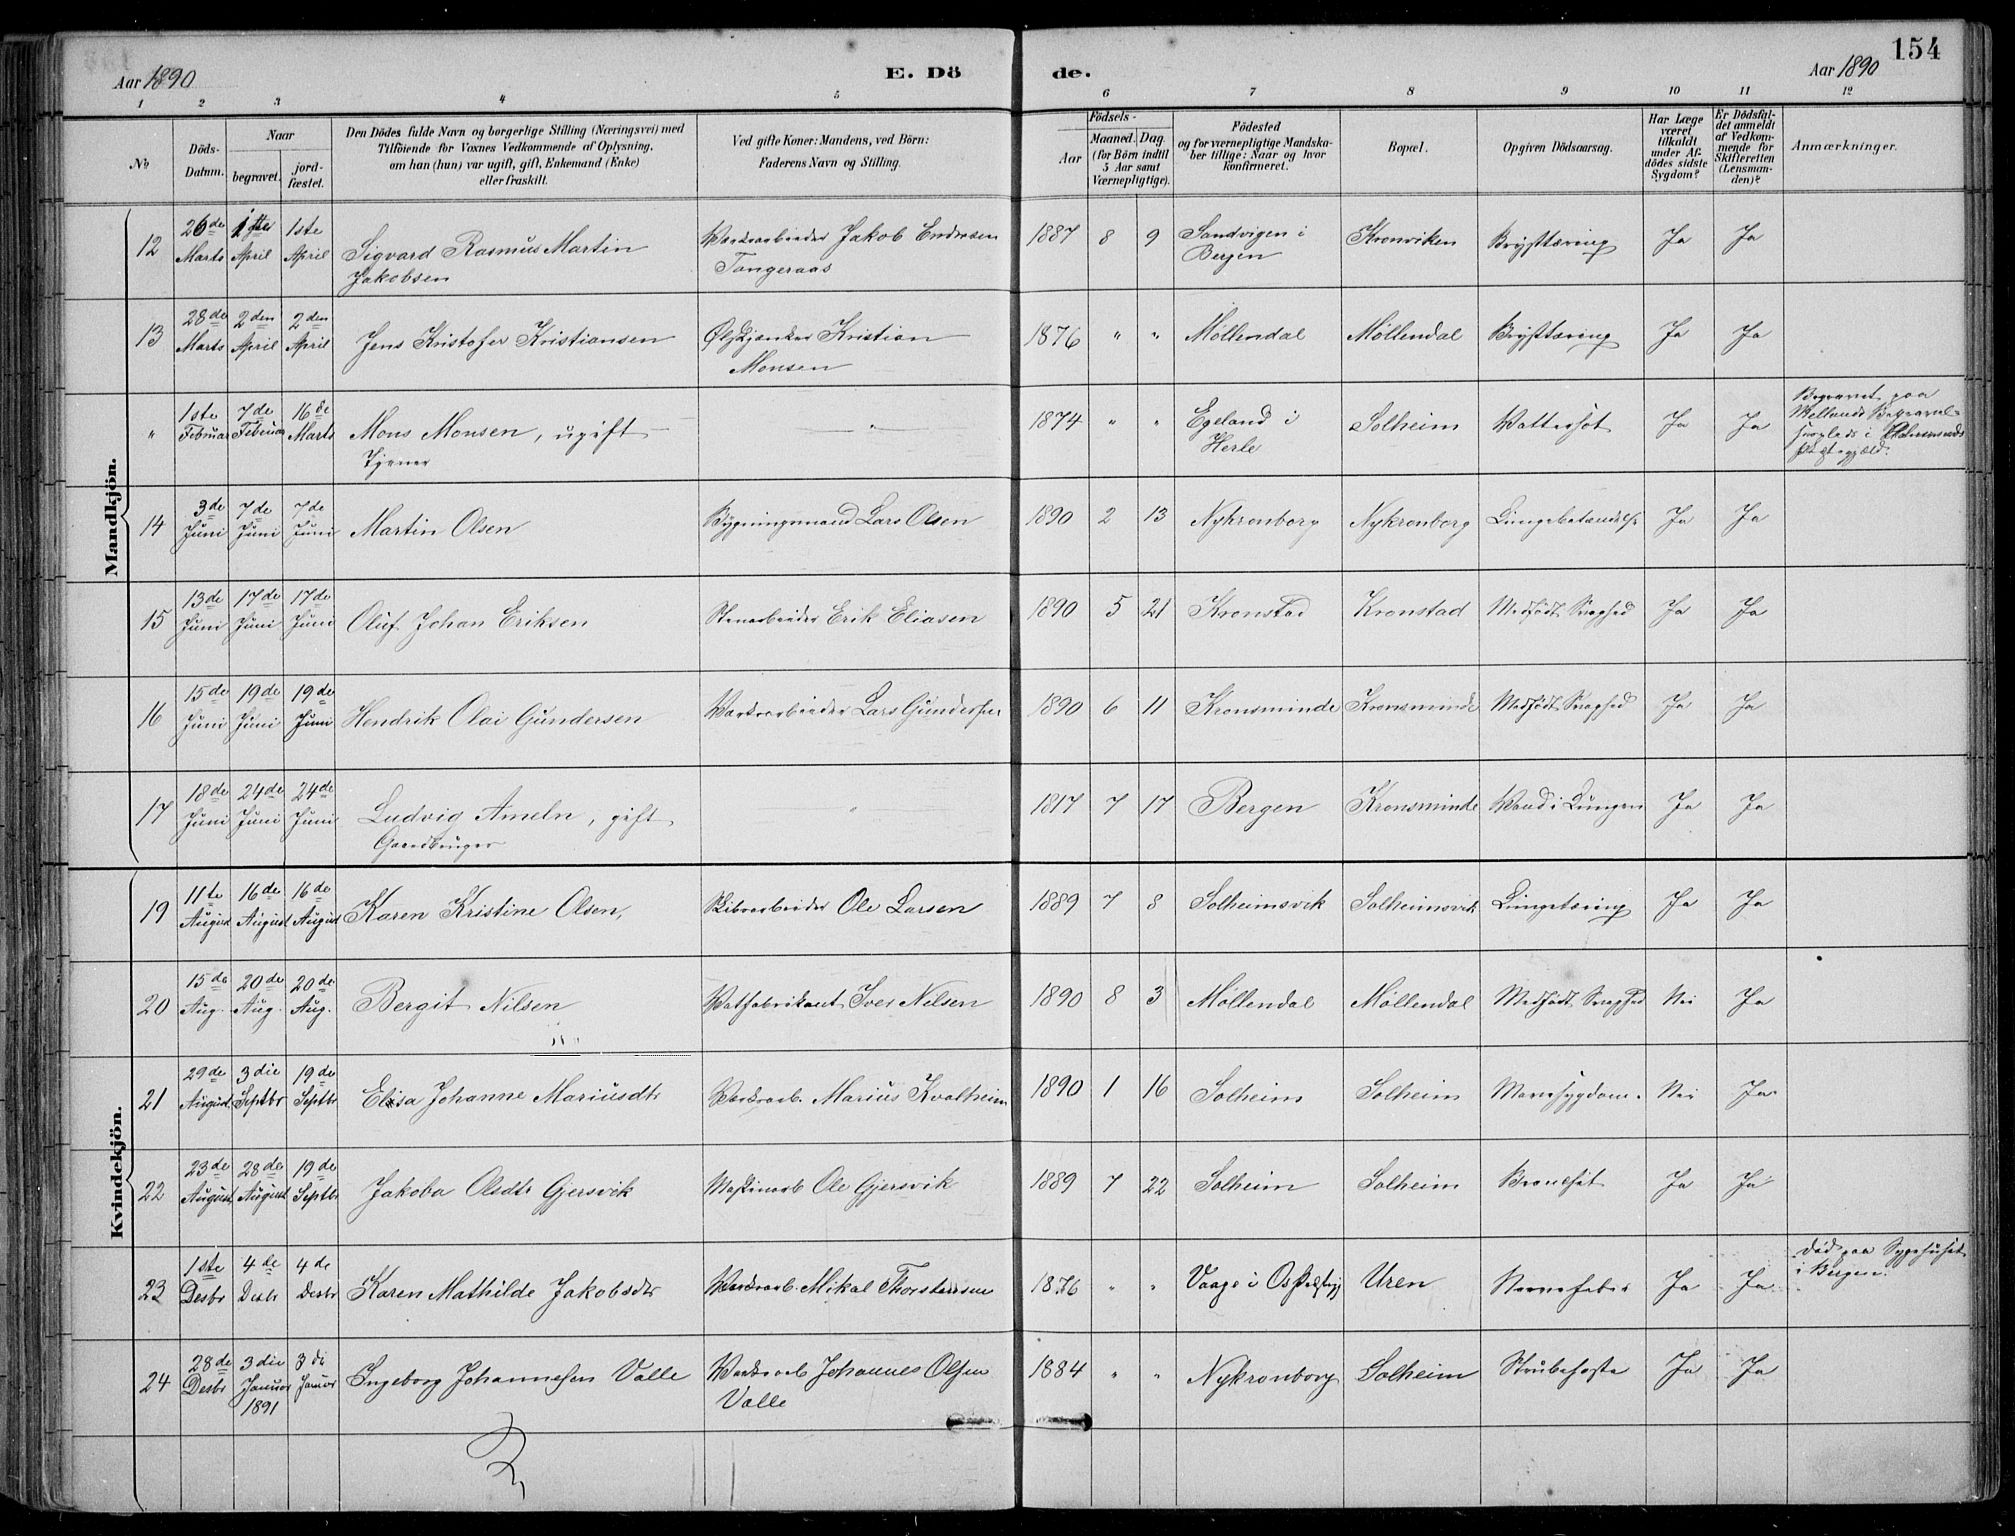 154
Aar 1890
E. Dö
de.
Aar 1890
1 2 3 4 5 6 7 8 9 10 11 12
No
Döds-
Datum.
Naar
begravet.
jord-
fæstet.
Den Dödes fulde Navn og borgerlige Stilling (Næringsvei) med
Tilföiende for Voxnes Vedkommende af Oplysning,
om han (hun) var ugift, gift, Enkemand (Enke)
eller fraskilt.
Ved gifte Koner: Mandens, ved Börn:
Faderens Navn og Stilling.
Födsels-
Aar
Maaned. Dag.
(for Börn indtil
5 Aar samt
Værnepligtige).
Födested
og for værnepligtige Mandska-
ber tillige: Naar og hvor
konfirmeret.
Bopæl.
Opgiven Dödsaarsag.
Har Læge
været
tilkaldt
under Af-
dödes sidste
Sygdom?
Er Dödsfal-
det anmeldt
af Vedkom-
mende for
Skifteretten
(Lensman-
den)?
Anmærkninger.
Mandkjön.
12 26de Marts 1ste April 1ste April Sigvard Rasmus Martin Jakobsen Værksarbeider Jakob Endresen Tangeraas 1887 8 9 Sandvigen i Bergen Kronviken Brysttæring Ja Ja
13 28de Marts 2den April 2den April Jens Kristofer Kristiansen Ølskjænker Kristian Monsen 1876 " " Møllendal Møllendal Brysttæring Ja Ja
" 1ste Februar 7de Februar 16de Marts Mons Monsen, ugift Tjener " 1874 " " Egeland i Herle Solheim Vattersot Ja Ja Begravet paa Begravelsesplads i Præstegjæld.
14 3de Juni 7de Juni 7de Juni Martin Olsen Bygningsmand Lars Olsen 1890 2 13 Nykronborg Nykronborg Lungebetændelse Ja Ja
15 13de Juni 17de Juni 17de Juni Oluf Johan Eriksen Stenarbeider Erik Eliasen 1890 5 21 Kronstad Kronstad Medfødt Svaghed Ja Ja
16 15de Juni 19de Juni 19de Juni Hendrik Olai Gundersen Værksarbeider Lars Gundersen 1890 6 11 Kronsminde Kronsminde Medfødt Svaghed Ja Ja
17 18de Juni 24de Juni 24de Juni Ludvig Ameln, gift Gaardbruger " 1817 7 17 Bergen Kronsminde Vand i Lungen Ja Ja
Kvindekjön.
19 11te August 16de August 16de August Karen Kristine Olsen, Skibsarbeider Ole Larsen 1889 7 8 Solheimsvik Solheimsvik Lungetæring Ja Ja
20 15de Aug. 20de Aug. 20de Aug. Bergit Nilsen Vatfabrikant Iver Nilsen 1890 8 3 Møllendal Møllendal Medfødt Svaghed Nei Ja
21 29de August 3die Septbr 19de Septbr Elisa Johanne Mariusdtr Værksarb. Marius Kvalheim 1890 1 16 Solheim Solheim Mavesygdom. Nei Ja
22 23de August 28de August 19de Septbr Jakoba Olsdtr Gjersvik Maskinarb Ole Gjersvik 1889 7 22 Solheim Solheim Ja Ja
23 1ste Desbr 4de Desbr 4de Desbr Karen Mathilde Jakobsdtr Værksarb. Mikal Thorstensen 1876 " " Vaage i Os Uren Nervefeber Ja Ja død paa Sygehuset i Bergen.
24 28de Desbr 3die Januar 1891 3di Januar Ingeborg Johannesen Valle Værksarb Johannes Olsen Valle 1884 " " Nykronborg Solheim Strubehoste Ja Ja